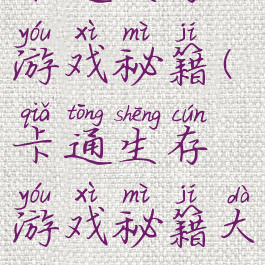 yóu xì mì jí
游戏秘籍(
qiǎ tōng shēng cún
卡通生存
yóu xì mì jí dà
游戏秘籍大